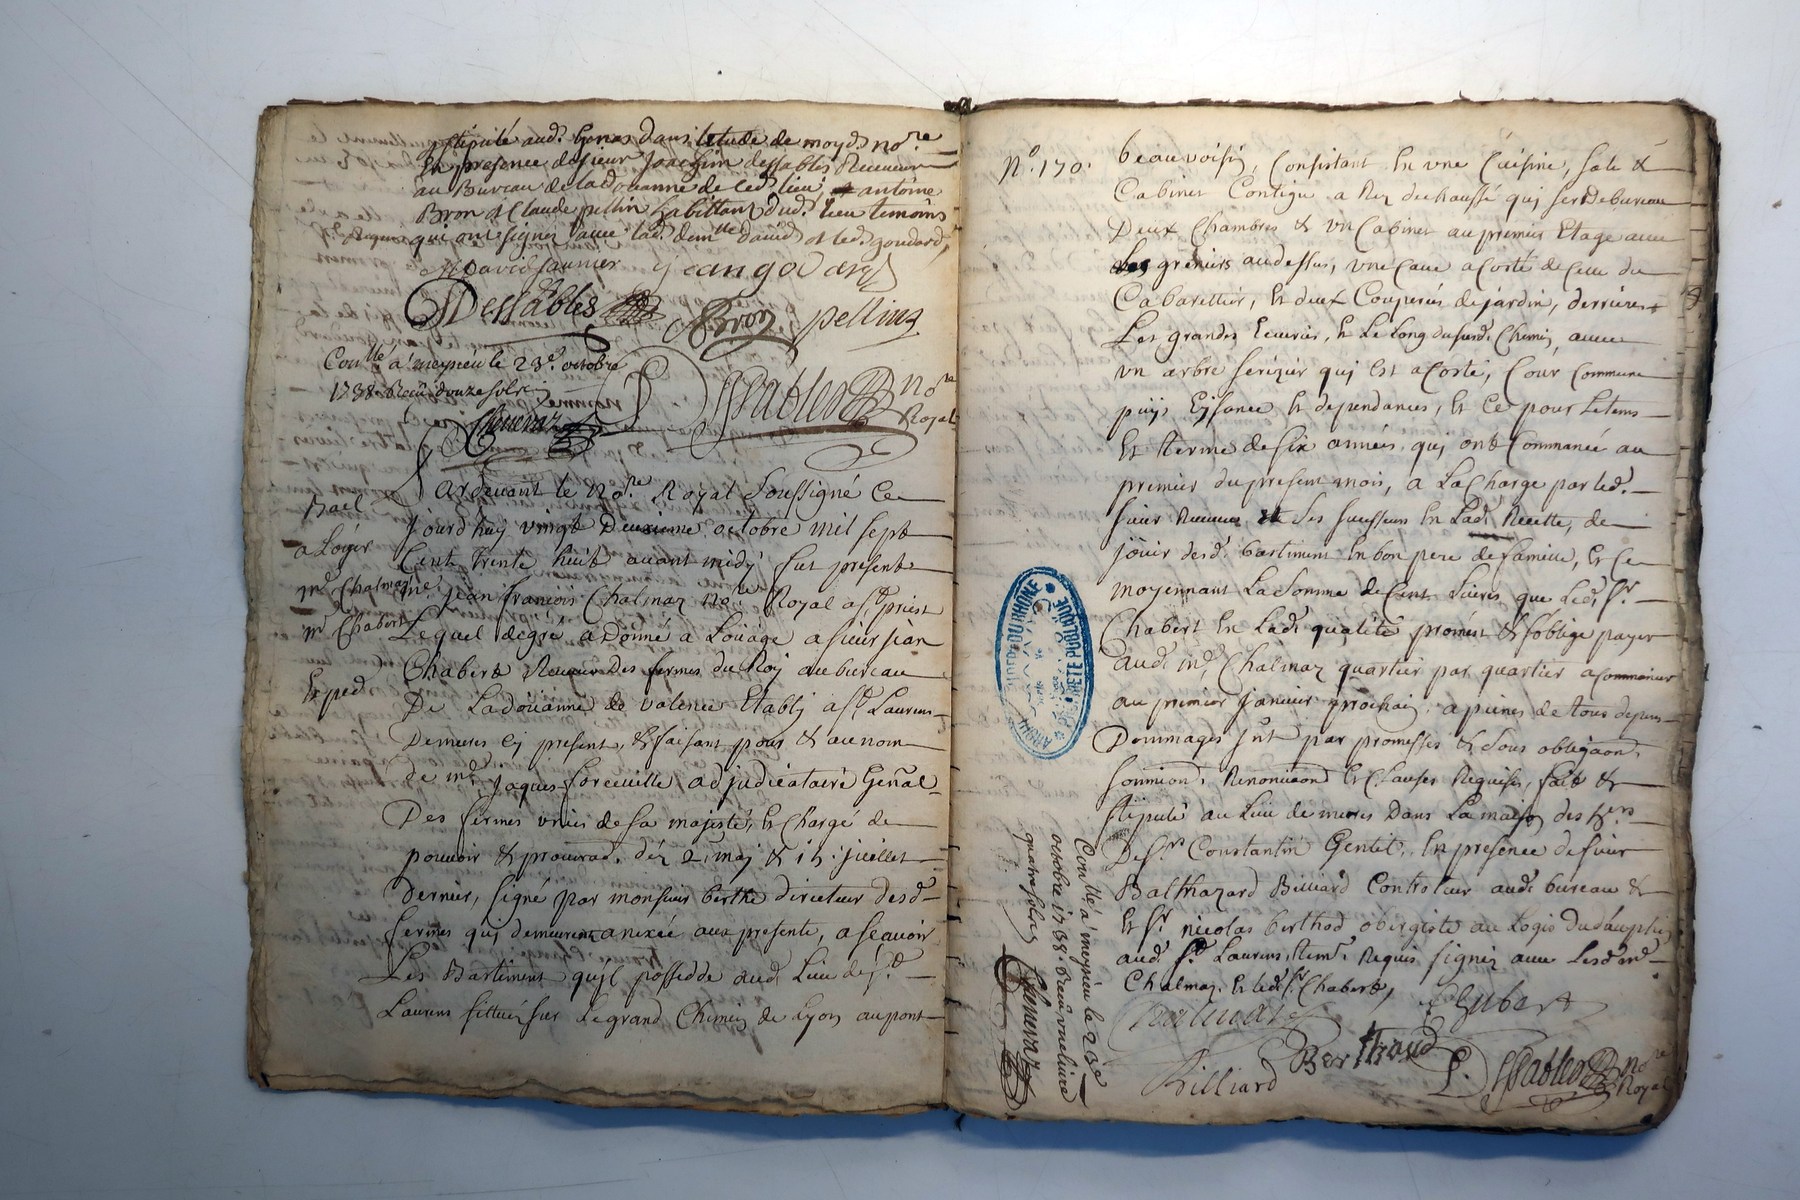 stipulé aud. Genas dans letude de moyd. nore
En presence de sieur Joachim dessables Receveur
au Bureau de la douanne de ced. lieu, antoine
Bron et Claude pellin habittans dud. lieu temoins
Requis qui ont signez avec lad. demlle david et led. goudard,
M david saunier jean goudard
Dessables Bron pellin
Conllé a meyzieu le 23e. octobre
1738. Receu douze sols
Chenevaz
P. Dessables nore
Royal
Pardevant le nore. Royal soussigné ce
Bail
jourdhuy vingt Deuxieme octobre mil sept
a Loyer
Cent trente huit avant midy fut present
mr. Chalmaz
me. jean françois Chalmaz nore Royal a st. priest
mr Chabert
Lequel degré a Donné a Loüage a sieur jean
Chabert Receveur des fermes du Roy au bureau
Exped.
De La doüanne de valence Etably a st. Laurens
Demures cy present, & faisant pour & au nom
de me. jaques forceville adjudicataire Genal
Des fermes unies de sa majesté, Et Chargé de
pouvoir & procuraon. des 2. may & 15. juillet
dernier, signé par monsieur berthe directeur desd.
fermes qui demeurent anexée aux presente, a scavoir
Les Bastiment quil possedde aud. Lieu de st.
Laurens sittués sur Le grand Chemin de Lyon au pont
No. 170.
beauvoisin, Consistant En une Cuisine, sale &
Cabinet Contigu a Rez de chaussé qui sert de bureau
Deux Chambres & un Cabinet au premier Etage avec
Les greniers au dessus, une Cave a costé de celle du
Cabarettier, Et deux Couperies de jardin, derrieres
Les grandes Ecuries, Et Le Long du susd. Chemin, avec
un arbre serizier qui Est a costé, Cour Commune
puys Aysance Et dependances, Et Ce pour Le tems
Et terme de six années qui ont Commancé au
premier du present mois, a La Charge par led.
sieur Receveur & ses successeurs En Lad. Recette, de
joüir desd. bastiment En bon pere de famille, Et Ce
moyennant La somme de Cent Livres que Led. sr.
Chabert En Lad. qualité promet & s'oblige payer
aud. me. Chalmaz quartier par quartier a commancer
au premier janvier prochain a peines de tous depens
Dommages jnt par promesses & sous obligaon.
soumions. Renonciaons Et Clauses Requises, fait &
stipulé au Lieu de mures Dans La maison des hers
De sr. Constantin Gentil, En presence de sieur
Balthazard Billiard Controleur aud. bureau &
Et sr. nicolas berthod obergiste au Logis du dauphin
aud. st. Laurens, tem. Requis signez avec Lesd. me
Chalmaz. Et led. sr. Chabert,
Chalmaz Chabert
Billiard Berthaud P. Dessables nore
Royal
Conllé a meyzieu le 23e
octobre 1738. Receu une livre
quatre sols
Chenevaz
ARCHIVES DU DEPT DU RHONE